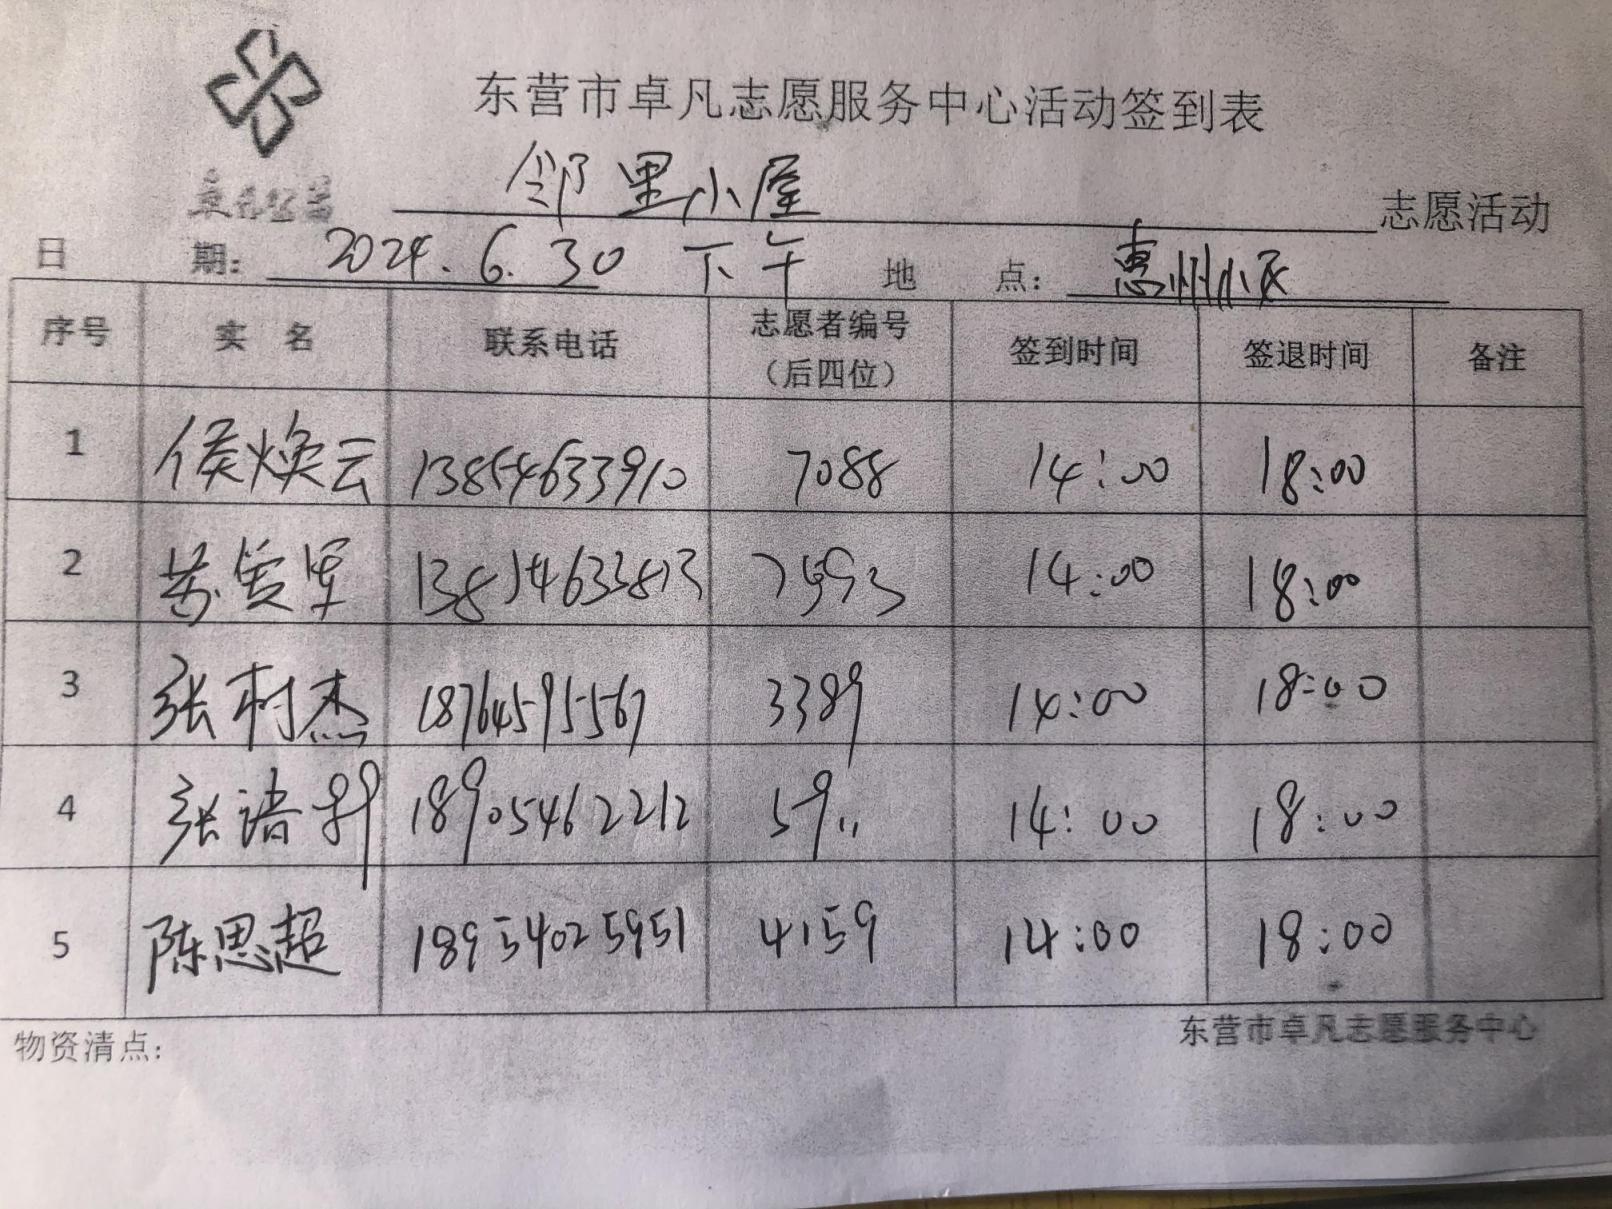 东营市卓凡志愿服务中心活动签到表
卓凡公益
邻里小屋 志愿活动
日 期: 2024.6.30 下午 地 点: 惠州小区
序号 实 名 联系电话 志愿者编号(后四位) 签到时间 签退时间 备注
1 侯焕云 13854633910 7088 14:00 18:00
2 苏爱军 13854633813 7593 14:00 18:00
3 张树杰 18764595567 3389 14:00 18:00
4 张诸 18905462212 59 14:00 18:00
5 陈思超 18954025951 4159 14:00 18:00
物资清点:
东营市卓凡志愿服务中心